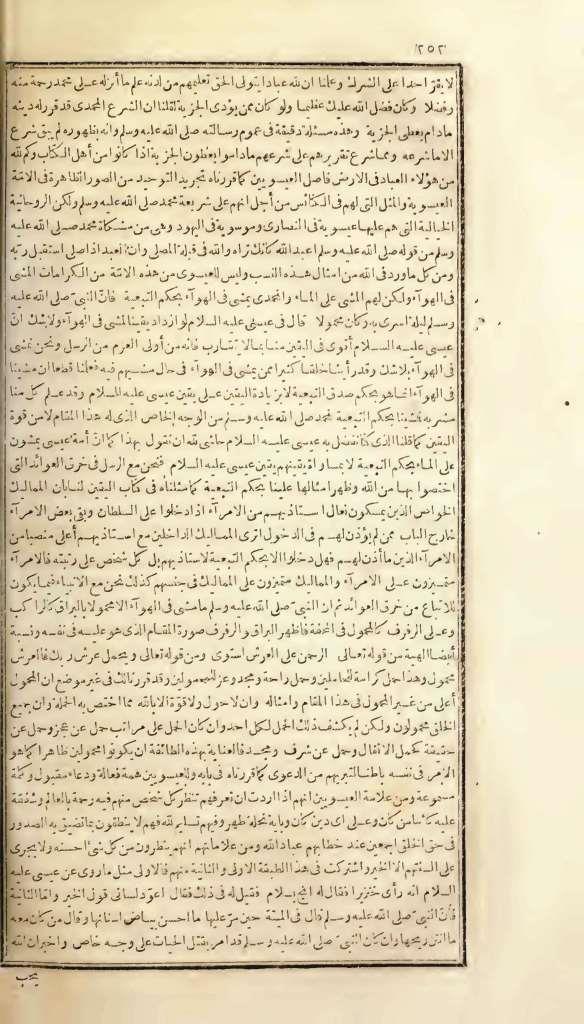 ٢٥٢
لا يقرّ احدا على الشرك وعلمنا ان لله عبادا يتولى الحق تعليمهم من لدنه علم ما أنزله على محمد رحمة منه
وفضلا وكان فضل الله عليك عظيما ولو كان ممن يؤدى الجزية لقلنا ان الشرع المحمدى قد قرر له دينه
مادام يعطى الجزية وهذه مسئلة دقيقة فى عموم رسالته صلى الله عليه وسلم وانه بظهوره لم يبق شرع
الا ما شرعه ومما شرع تقريرهم على شرعهم ماداموا يعطون الجزية اذا كانوا من أهل الكتاب وكم لله
من هؤلاء العباد فى الارض فاصل العيسويين كما قررناه تجريد التوحيد من الصور الظاهرة فى الامّة
العيسوية والمثل التى لهم فى الكنائس من أجل انهم على شريعة محمد صلى الله عليه وسلم ولكن الروحانية
الخيالية التى هم عليها عيسوية فى النصارى وموسوية فى اليهود وهى من مشكاة محمد صلى الله عليه
وسلم من قوله صلى الله عليه وسلم اعبد الله كأنك تراه والله فى قبلة المصلى وان العبد اذا صلى استقبل ربه
ومن كل ما ورد فى الله من امثال هذه النسب وليس للعيسوى من هذه الامّة من الكرامات المشى
فى الهوآء ولكن لهم المشى على الماء والمحمدى يمشى فى الهوآء بحكم التبعية فانّ النبىّ صلى الله عليه
وسلم ليلة اسرى به وكان محمولا قال فى عيسى عليه السلام لو ازداد يقينا لمشى فى الهوآء ولا شك انّ
عيسى عليه السلام أقوى فى اليقين منا بما لا يتقارب فانه من أولى العزم من الرسل ونحن نمشى
فى الهوآء بلا شك وقد رأينا خلقا كثيرا ممن يمشى فى الهوآء فى حال مشيهم فيه فعلمنا قطعا ان مشينا
فى الهوآء انما هو بحكم صدق التبعية لا بزيادة اليقين على يقين عيسى عليه السلام وقد علم كل منا
مشربه بمشينا بحكم التبعية لمحمد صلى الله عليه وسلم من الوجه الخاص الذى له هذا المقام لا من قوة
اليقين كما قلنا الذى كنا نفضل به عيسى عليه السلام حاشى لله ان نقول بهذا كما انّ أمة عيسى يمشون
على الماء بحكم التبعية لا بمساواة يقينهم يقين عيسى عليه السلام فنحن مع الرسل فى خرق العوائد التى
اختصوا بها من الله وظهر امثالها علينا بحكم التبعية كما مثلناه فى كتاب اليقين لنا بان المماليك
الخواص الذين يمسكون نعال استاذيهم من الامرآء اذا دخلوا على السلطان وبقى بعض الامرآء
خارج الباب ممن لم يؤذن لهم فى الدخول اترى المماليك الداخلين مع استاذيهم أعلى منصبا من
الامرآء الذين ما أذن لهم فهل دخلوا الا بحكم التبعية لاستاذيهم بل كل شخص على رتبته فالامرآء
متميزون على الامرآء والمماليك متميزون على المماليك فى جنسهم كذلك نحن مع الانبياء فيما يكون
للاتباع من خرق العوائد ثم ان النبىّ صلى الله عليه وسلم ما مشى فى الهوآء الا محمولا بالبراق كالراكب
وعلى الرفرف كالمحمول فى المحفة فاظهر البراق والرفرف صورة المقام الذى هو عليه فى نفسه ونسبة
أيضا الهية من قوله تعالى الرحمن على العرش استوى ومن قوله تعالى ويحمل عرش ربك فالعرش
محمول وهذا حمل كرامة للحاملين وحمل راحة ومجد وعز للمحمولين وقد قررنا لك فى غير موضع ان المحمول
أعلى من غير المحمول فى هذا المقام وامثاله وان لا حول ولا قوّة الا بالله مما اختص به الحملة وان جميع
الخلق محمولون ولكن لم يكشف ذلك الحمل لكل احد وان كان الحمل على مراتب حمل عن عجز وحمل عن
حقيقة كحمل الاثقال وحمل عن شرف ومجد فالعناية بهذه الطائفة ان يكونوا محمولين ظاهرا كما هو
الامر فى نفسه باطنا لتبريهم من الدعوى كما قررناه فى بابه وللعيسويين همة فعالة ودعاء مقبول وكلمة
مسموعة ومن علامة العيسويين انهم اذا اردت ان تعرفهم تنظر كل شخص منهم فيه رحمة بالعالم وشفقة
عليه كائنا من كان وعلى اى دين كان وباية نحلة ظهر وفيهم تسليم لله فهم لا ينطقون بما تضيق به الصدور
فى حق الخلق اجمعين عند خطابهم عباد الله ومن علاماتهم انهم ينظرون من كل شئ احسنه ولا يجرى
على السنتهم الا الخير واشتركت فى هذا الطبقة الاولى والثانية منهم فالاولى مثل ما روى عن عيسى عليه
السلام انه رأى خنزيرا فقال له انج بسلام فقيل له فى ذلك فقال اعوّد لسانى قول الخير واما الثانية
فانّ النبىّ صلى الله عليه وسلم قال فى الميتة حين مرّ عليها ما احسن بياض اسنانها وقال من كان معه
ما انتن ريحها وان كان النبىّ صلى الله عليه وسلم قد امر بقتل الحيات على وجه خاص واخبر ان الله
يحب